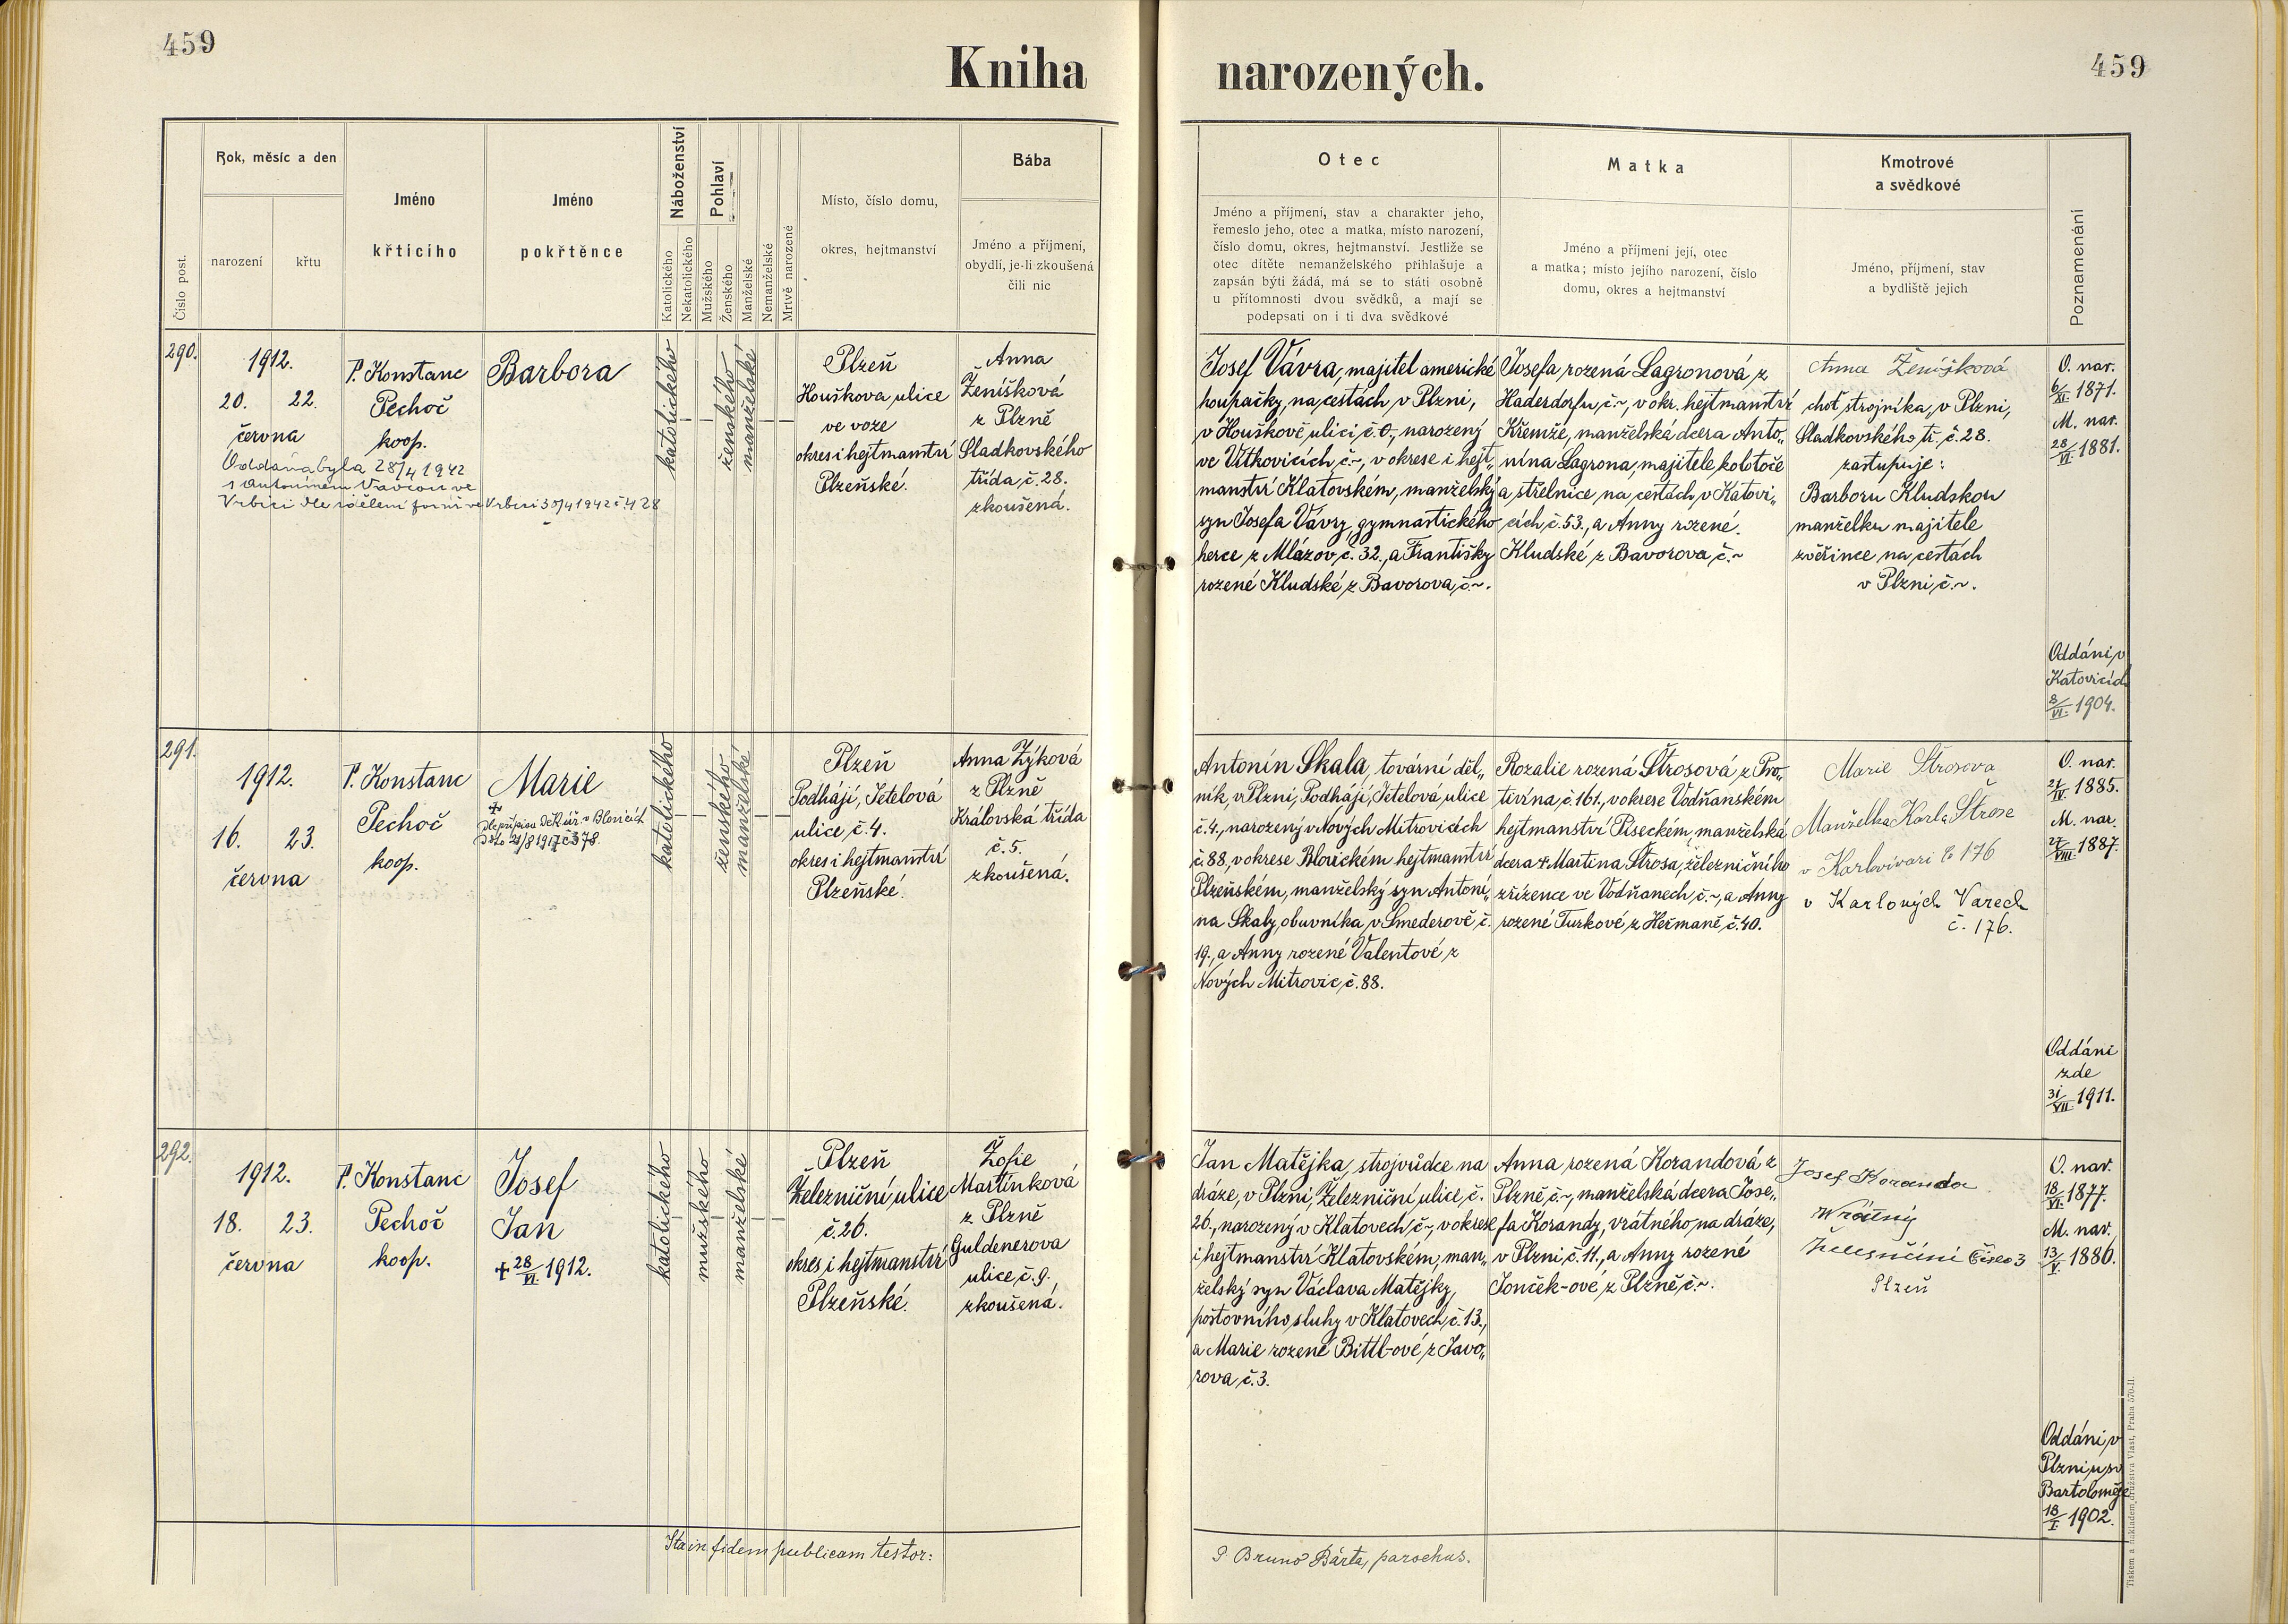 459
Kniha narozených.
459
Číslo post.
Rok, měsíc a den
narození
křtu
Jméno
křticího
Jméno
pokřtěnce
Náboženství
Katolického
Nekatolického
Pohlaví
Mužského
Ženského
Manželské
Nemanželské
Mrtvě narozené
Místo, číslo domu,
okres, hejtmanství
Bába
Jméno a příjmení,
obydlí, je-li zkoušená
čili nic
Otec
Jméno a příjmení, stav a charakter jeho,
řemeslo jeho, otec a matka, místo narození,
číslo domu, okres, hejtmanství. Jestliže se
otec dítěte nemanželského přihlašuje a
zapsán býti žádá, má se to státi osobně
u přítomnosti dvou svědků, a mají se
podepsati on i ti dva svědkové
Matka
Jméno a příjmení její, otec
a matka; místo jejího narození, číslo
domu, okres a hejtmanství
Kmotrové
a svědkové
Jméno, příjmení, stav
a bydliště jejich
Poznamenání
290.
1912.
20. 22.
června
Oddána byla 28/4 1942
s Antonínem Vavrou ve
Vrbici dle sdělení far. úř. ve Vrbici 30/4 1942 č. 428
P. Konstanc
Pechoč
koop.
Barbora
katolického
ženského
manželské
Plzeň
Houškova ulice
ve voze
okres i hejtmanství
Plzeňské.
Anna
Ženíšková
z Plzně
Sladkovského
třída, č. 28.
zkoušená.
Josef Vávra, majitel americké
houpačky, na cestách v Plzni,
v Houškově ulici, č. 0, narozený
ve Vítkovicích, č. ~, v okrese i hejt„
manství Klatovském, manželský
syn Josefa Vávry, gymnastického
herce z Mlázov, č. 32., a Františky
rozené Kludské z Bavorova, č. ~.
Josefa, rozená Lagronová z
Haderdorfu, č. ~, v okr. hejtmanství
Křemže, manželská dcera Anto„
nína Lagrona, majitele kolotoče
a střelnice, na cestách, v Katovi„
cích, č. 53., a Anny rozené
Kludské z Bavorova, č. ~
Anna Ženíšková
choť strojníka, v Plzni,
Sladkovského tř. č. 28.
zastupuje:
Barboru Kludskou
manželku majitele
zvěřince na cestách
v Plzni, č. ~.
O. nar.
6/XI. 1871.
M. nar.
28/VI. 1881.
Oddáni, v
Katovicích
8/VI. 1904.
291.
1912.
16. 23.
června
P. Konstanc
Pechoč
koop.
Marie
+
dle přípisu děk. úř. v Blovicích
21/8 1917 č. 378.
katolického
ženského
manželské
Plzeň
Podhájí, Jetelová
ulice č. 4.
okres i hejtmanství
Plzeňské.
Anna Zýková
z Plzně
Královská třída
č. 5.
zkoušená.
Antonín Skala, tovární děl„
ník, v Plzni, Podhájí, Jetelová ulice
č. 4., narozený v Nových Mitrovicích
č. 88, v okrese Blovickém hejtmanství
Plzeňském, manželský syn Antoní„
na Skaly, obuvníka, v Smederově, č.
19., a Anny rozené Valentové z
Nových Mitrovic, č. 88.
Rozalie rozená Štrosová z Pro„
tivína, č. 161., v okrese Vodňanském
hejtmanství Píseckém, manželská
dcera + Martina Štrosa, železničního
zřízence ve Vodňanech, č. ~, a Anny
rozené Turkové z Heřmaně, č. 40.
Marie Štrosova
Manželka Karla Štrose
v Karlovivari č 176
v Karlových Varech
č. 176.
O. nar.
21/IV. 1885.
M. nar.
27/VIII. 1887.
Oddáni
zde
31/VII 1911.
292.
1912.
18. 23.
června
P. Konstanc
Pechoč
koop.
Josef
Jan
+ 28/VI. 1912.
katolického
mužského
manželské
Plzeň
Železniční ulice
č. 26.
okres i hejtmanství
Plzeňské.
Žofie
Martínková
z Plzně
Guldenerova
ulice, č. 9.,
zkoušená.
Jan Matějka, strojvůdce na
dráze, v Plzni, Železniční ulice, č.
26., narozený v Klatovech, č. ~, v okrese
i hejtmanství Klatovském, man„
želský syn Václava Matějky,
poštovního sluhy v Klatovech, č. 13.,
a Marie rozené Bittl-ové z Javo„
rova, č. 3.
Anna rozená Korandová z
Plzně, č. ~, manželská dcera Jose„
fa Korandy, vrátného na dráze,
v Plzni č. 11., a Anny rozené
Jonček-ové z Plzně, č. ~.
Josef Koranda
Wrátný
Železniční Čislo 3
Plzeň
O. nar.
18/VI. 1877.
M. nar.
13/V. 1880.
Oddáni, v
Plzni, u sv
Bartoloměje
18/I. 1902.
Ita in fidem publicam testor:
P. Bruno Bárta, parochus.
Tiskem a nákladem družstva Vlast, Praha 570-II.